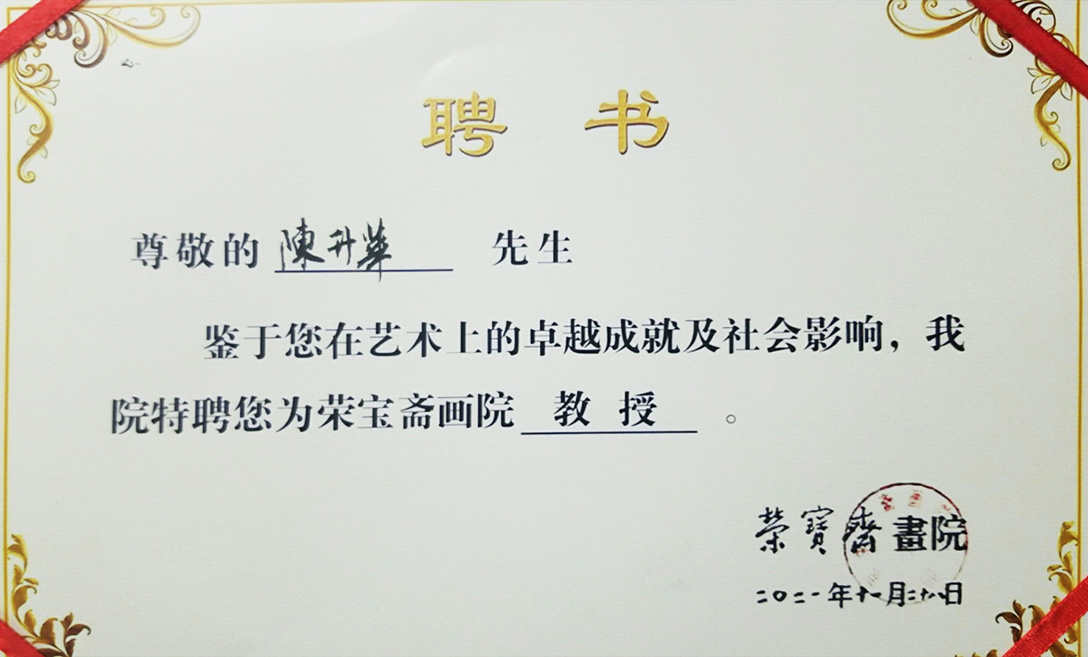 聘书
尊敬的 陳升華 先生
鉴于您在艺术上的卓越成就及社会影响，我
院特聘您为荣宝斋画院 教 授 。
荣寶齋畫院
二〇二一年十一月二十八日